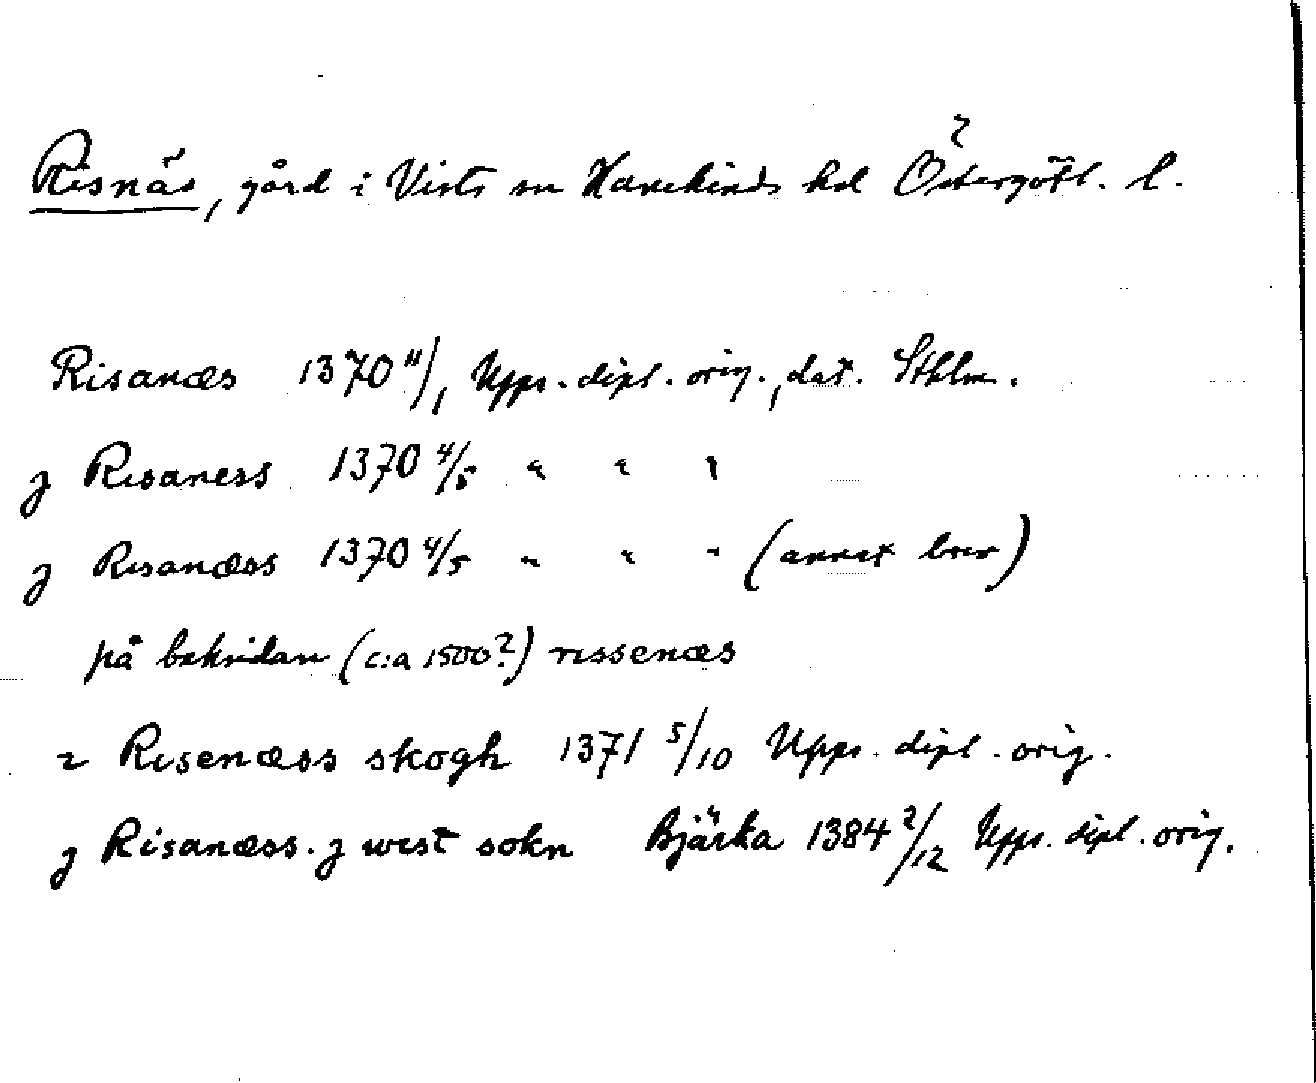 Risnäs, gård i Vists sn Hanekinds hd Östergötl. l.
Risanæs 1370 11/1 Upps. dipl. orig., dat. Sthlm.
j Risaness 1370 4/5 " " "
j Risanæss 1370 4/5 " " " (annat brev)
på baksidan (c:a 1500?) rissenæs
z Risenæss skogh 1371 5/10 Upps. dipl. orig.
j Risanæss. j west sokn Bjärka 1384 2/12 Upps. dipl. orig.